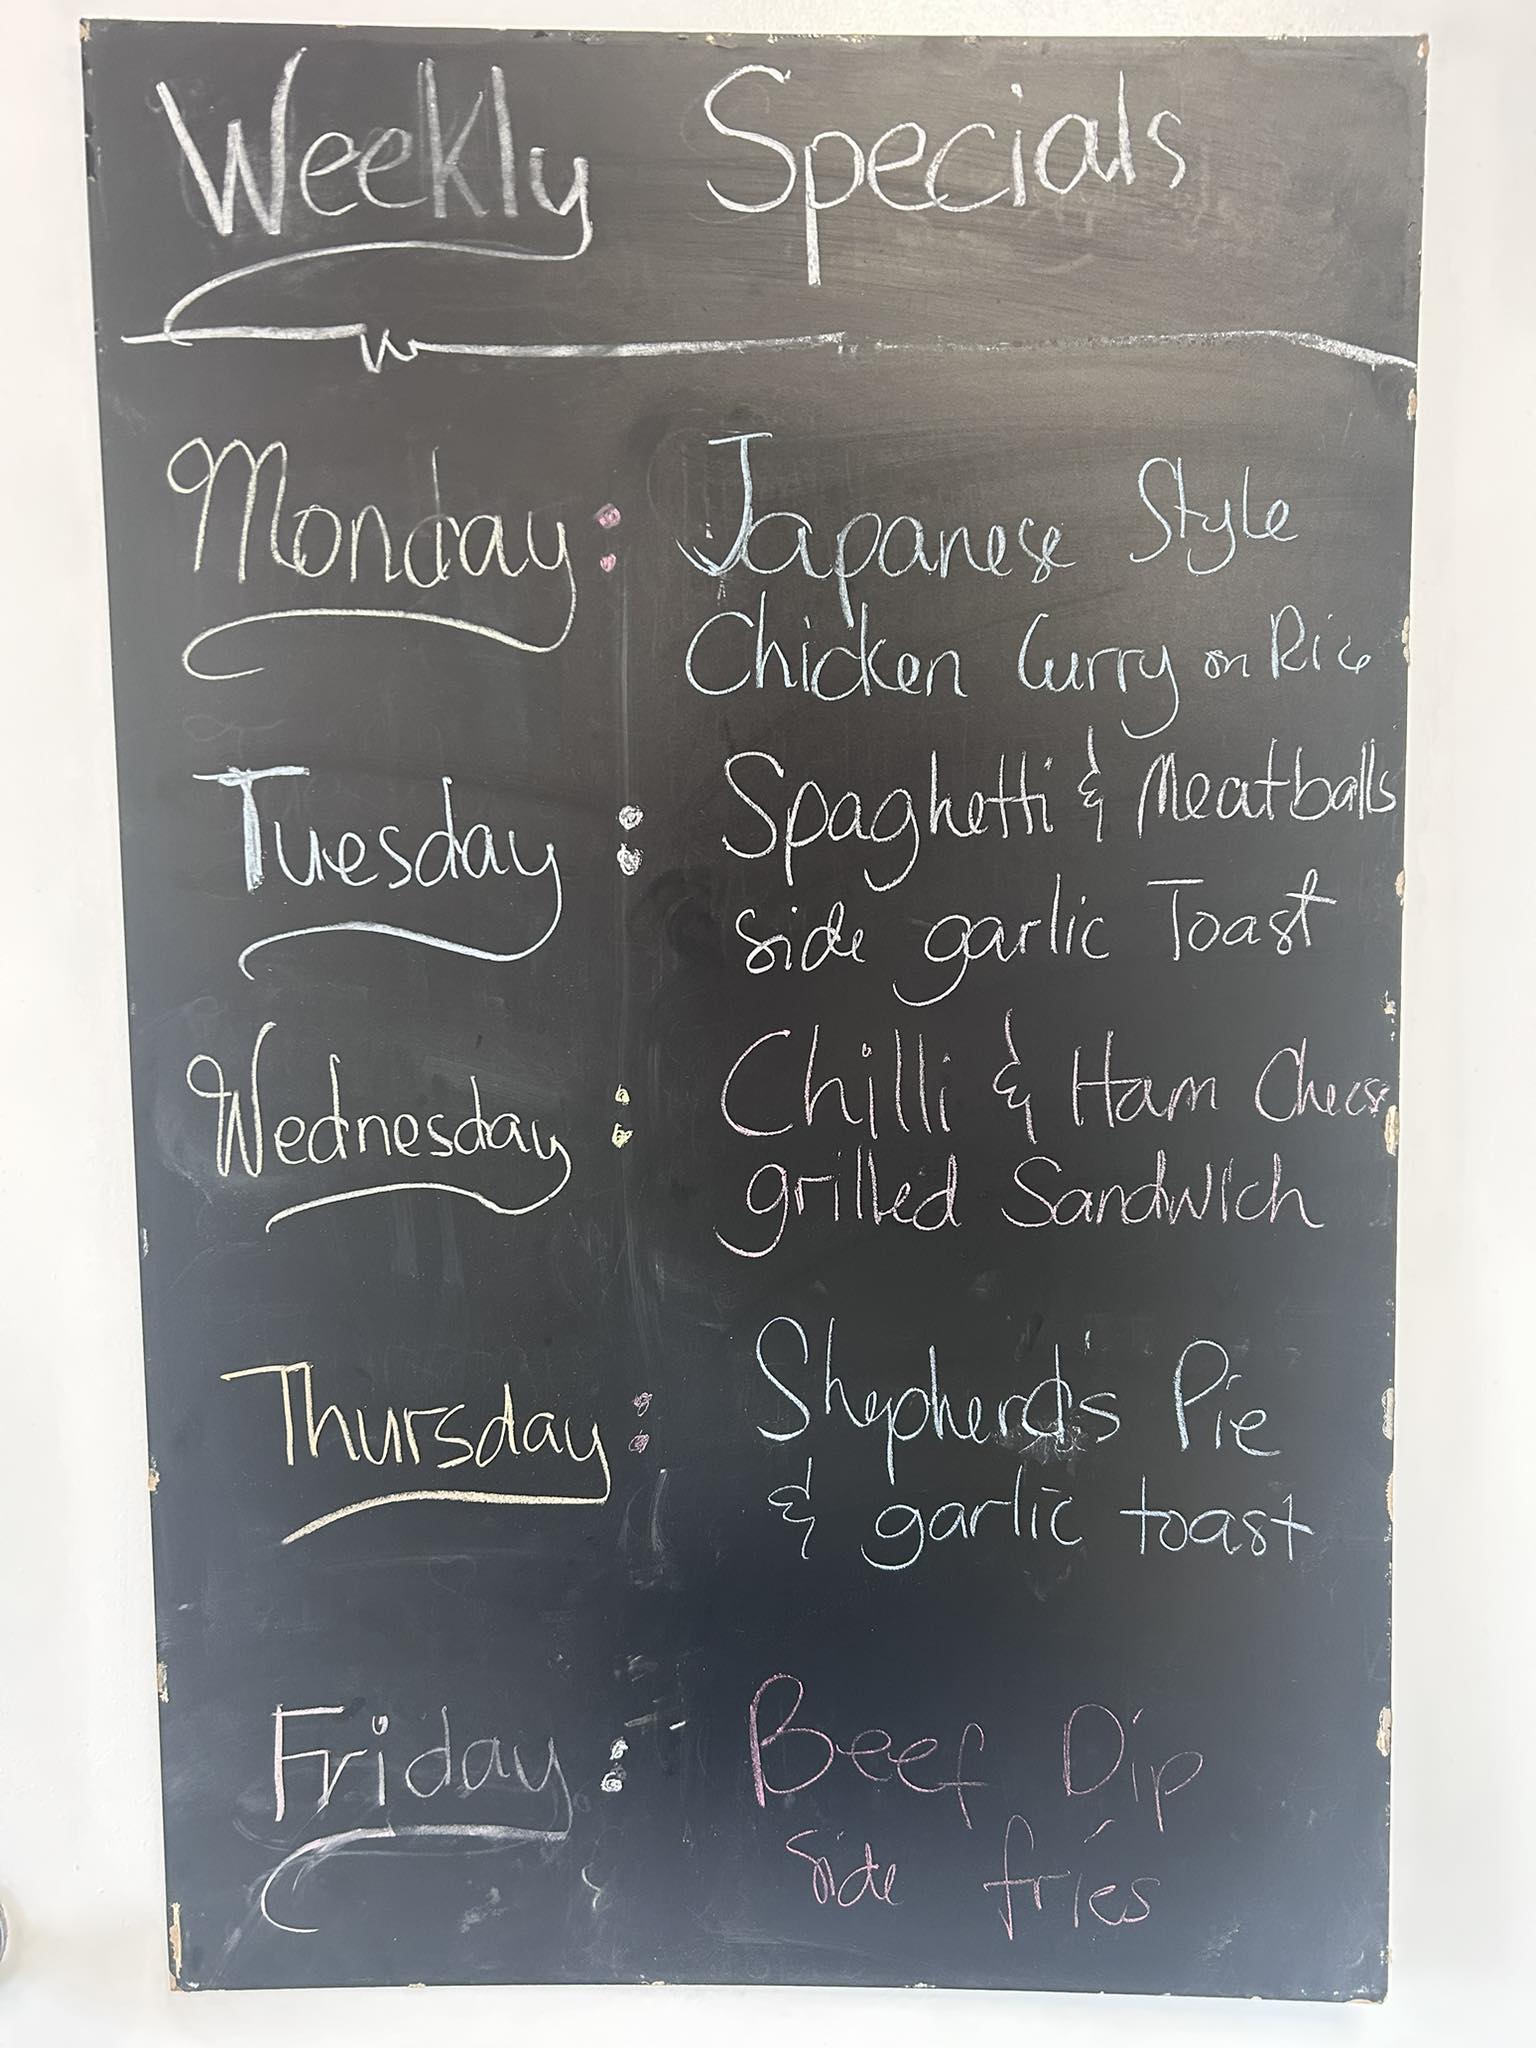 Weekly Specials
Monday: Japanese Style
Chicken Curry on Rice
Tuesday: Spaghetti & Meatballs
side garlic Toast
Wednesday: Chilli & Ham Cheese
grilled Sandwich
Thursday: Shepherd's Pie
& garlic toast
Friday: Beef Dip
side fries